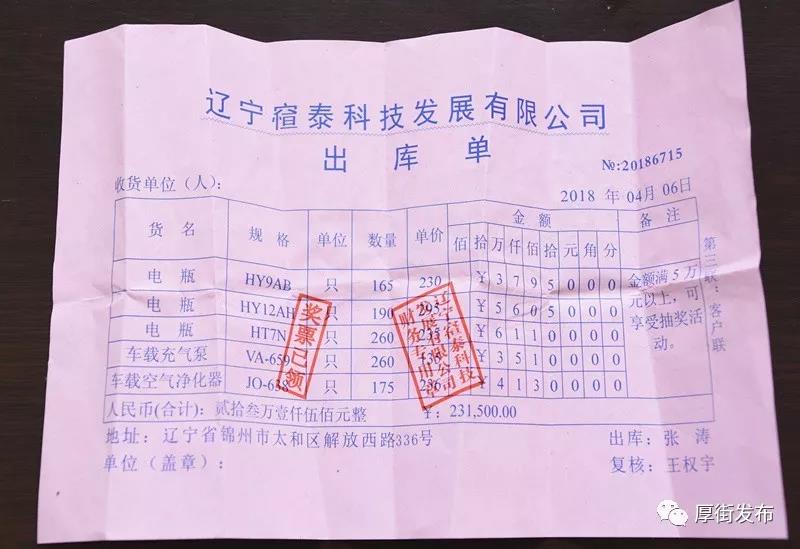 辽宁萱泰科技发展有限公司
出库单
№:20186715
收货单位（人）：
2018 年 04月 06日
货名 规格 单位 数量 单价 金额 备注
佰 拾 万 仟 佰 拾 元 角 分
电瓶 HY9AB 只 165 230 ¥ 3 7 9 5 0 0 0
电瓶 HY12AH 只 190 295 ¥ 5 6 0 5 0 0 0
电瓶 HT7N 只 260 235 ¥ 6 1 1 0 0 0 0
车载充气泵 VA-659 只 260 ¥ 3 5 1 0 0 0 0
车载空气净化器 JO-638 只 175 236 ¥ 4 1 3 0 0 0 0
金额满5万
元以上，可
享受抽奖活
动。
第三联：客户联
人民币(合计)：贰拾叁万壹仟伍佰元整 ¥：231,500.00
地址：辽宁省锦州市太和区解放西路336号
出库：张涛
单位（盖章）：
复核：王权宇
奖票已领
辽宁萱泰科技
发展有限公司
财务专用章
厚街发布